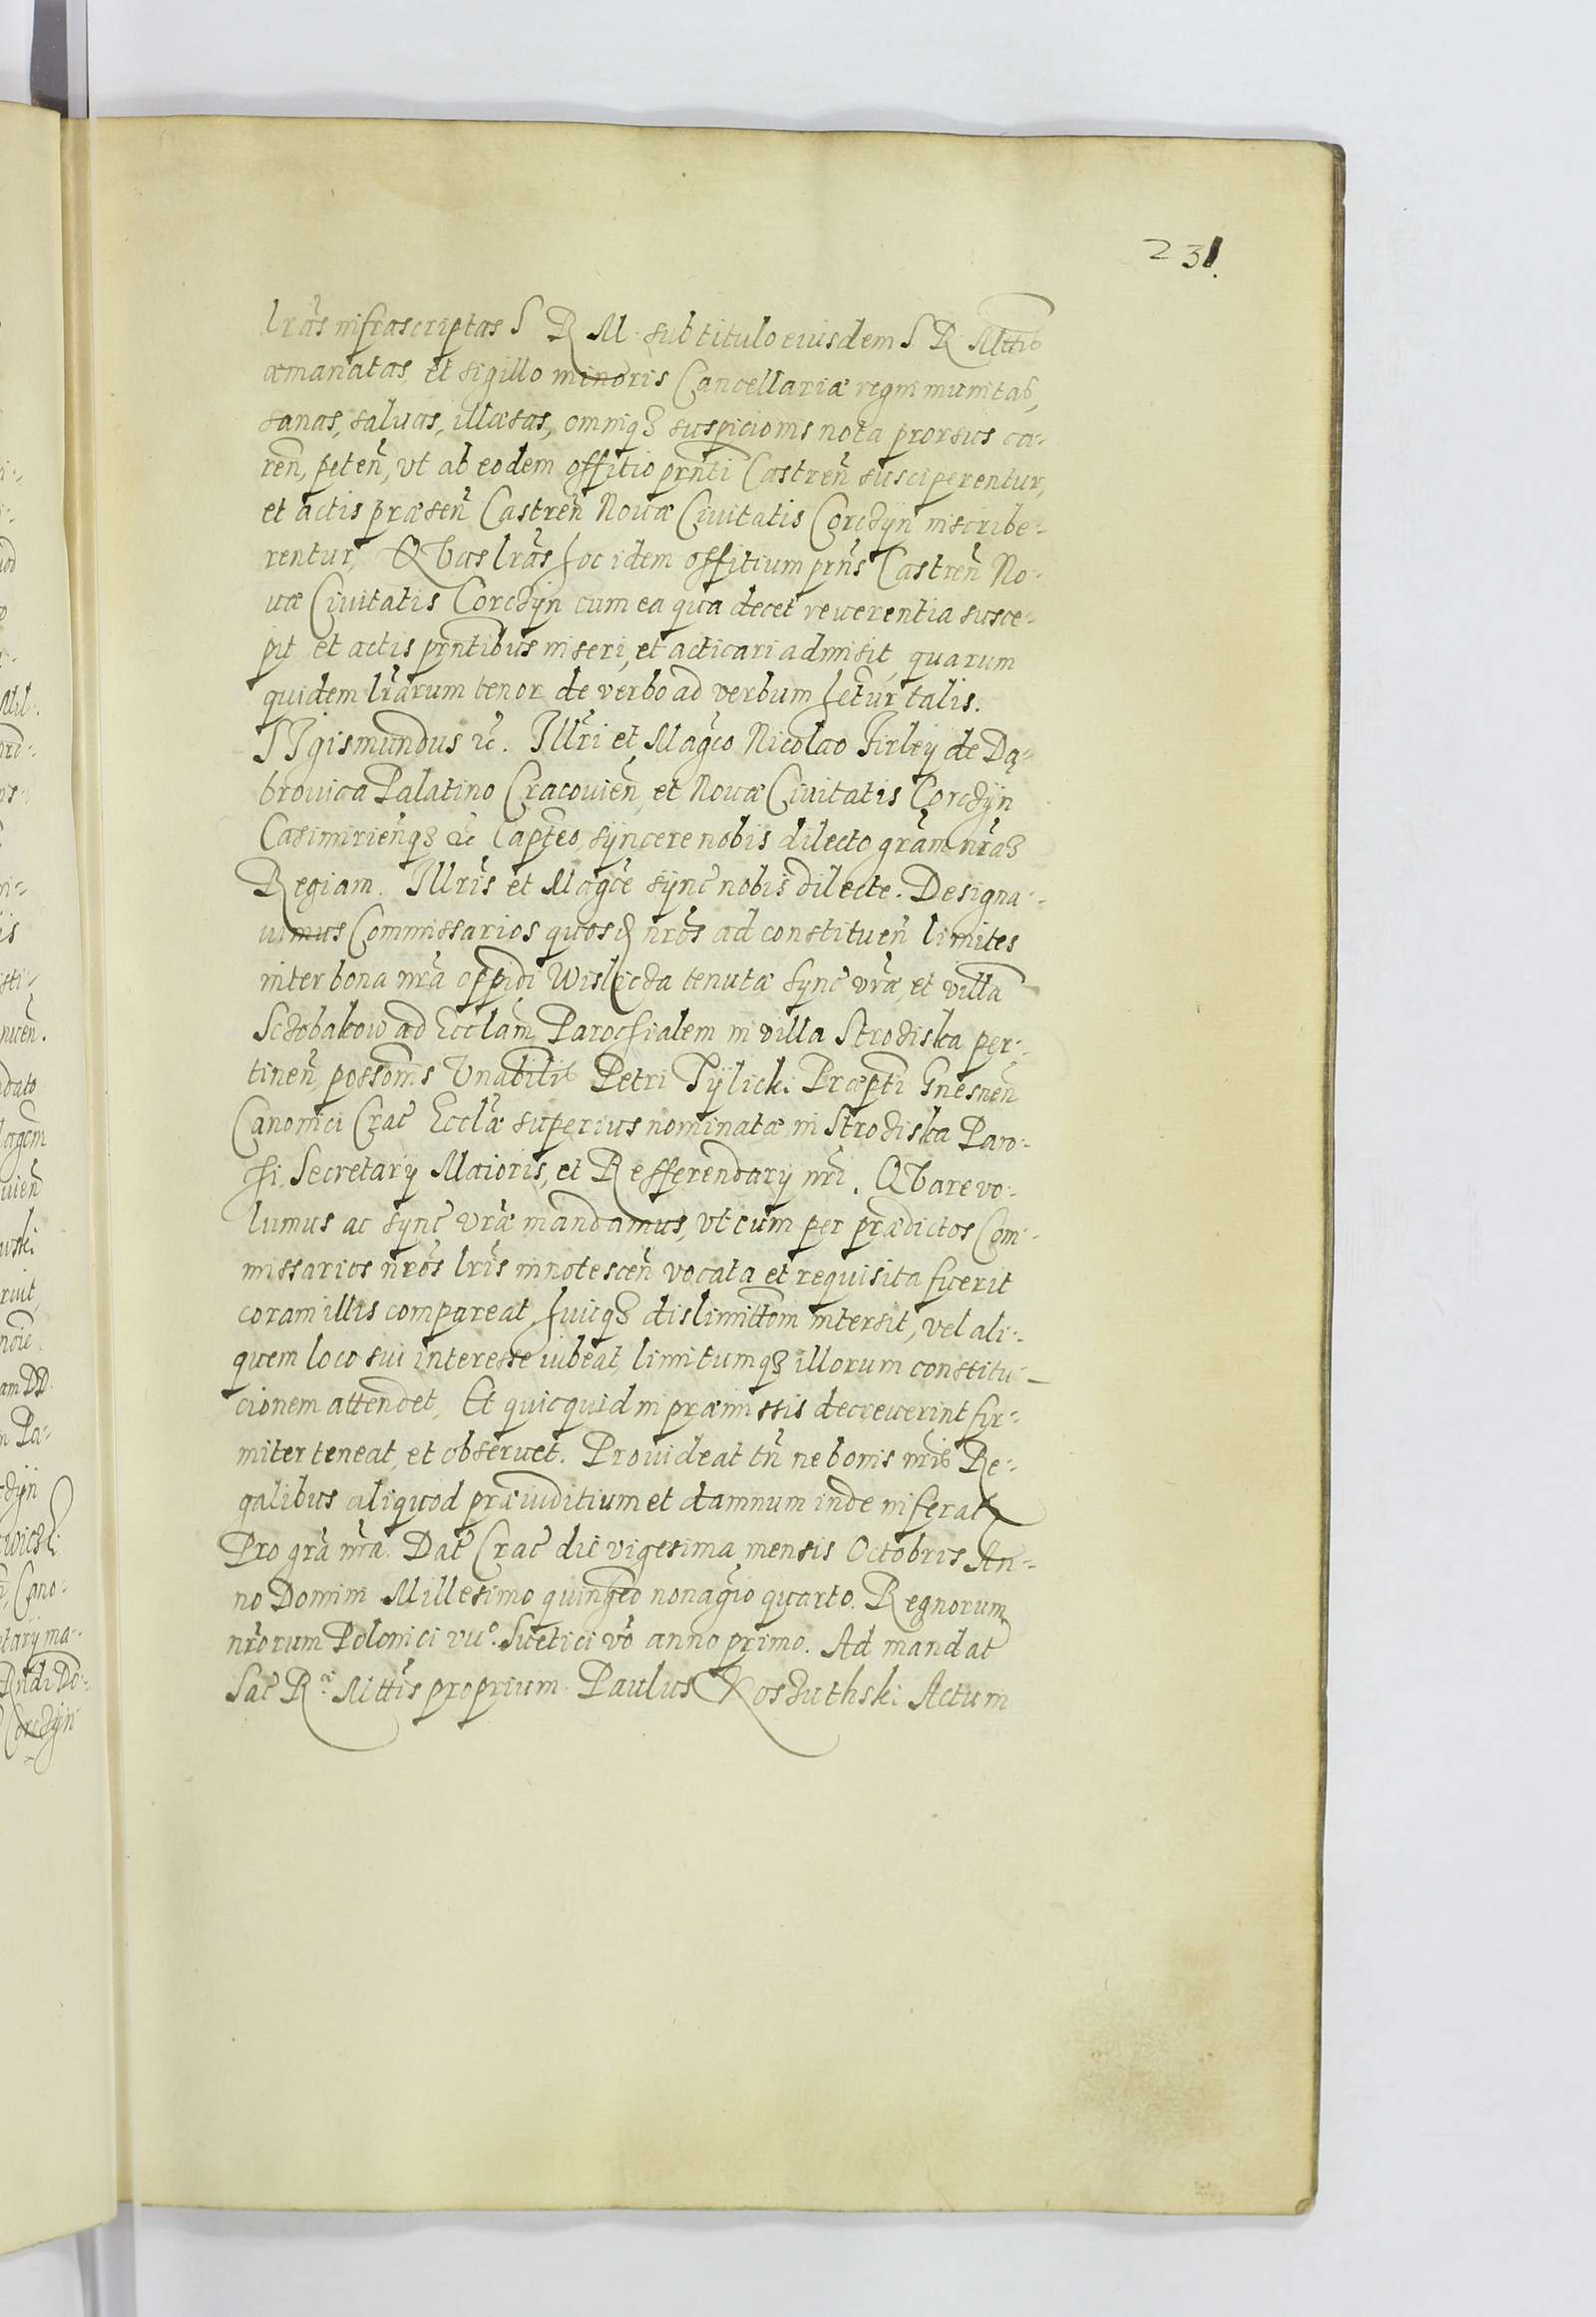 231.
lrãs infrascriptas S R M. sub titulo eiusdem S R Mttis
æmanatas, et sigillo minoris Cancellariæ regni munitas,
sanas, saluas, illæsas, omniqȝ suspicionis nota prorsus ca-
ren̄, peten̄, vt ab eodem offitio prn̄ti Castren̄ susciperentur,
et actis præsen̄ Castren̄ Nouæ Ciuitatis Corczÿn inscribe-
rentur, Quas lrãs hoc idem offitium prn̄s Castren̄ No-
uæ Ciuitatis Corczÿn cum ea qua decet reuerentia susce-
pit et actis prn̄tibus inseri, et acticari admisit, quarum
quidem lrãrum tenor de verbo ad verbum hẽtur talis.
SIgismundus &c̃. Illr̃i et Magc̃o Nicolao Firleÿ de Dą-
browica Palatino Cracouien̄, et Nouæ Ciuitatis Corczÿn
Casimirien̄qȝ &c̃ Capt̃eo, sÿncere nobis dilecto grãm nrãȝ
Regiam. Illrĩs et Magc̃e sÿnc̃ nobis dilecte. Designa-
uimus Commissarios quosd nrõs ad constituen̄ limites
inter bona nrã oppidi Wislicza tenutæ sync̃ vrãe, et villã
Sczobakow ad Ecclãm Parochialem in villa Stroziska per-
tinen̄, possom̃s Vnabilis Petri Tÿlicki Præpt̃i Gnesnen̄
Canonici Crac̃ Ecclãe superius nominatæ in Stroziska Paro-
hi, Secretarÿ Maioris, et Refferendarÿ nrĩ. Quare vo-
lumus ac sync̃ vrãe mandamus, vt cum per prædictos Com-
missarios nrõs lrĩs innotescen̄ vocata et requisita fuerit
coram illis compareat, huicqȝ dislimittom̃ intersit, vel ali-
quem loco sui interesse iubeat, limitumqȝ illorum constitu-
cionem attendet, Et quicquid in præmissis decreuerint fir-
miter teneat, et obseruet. Prouideat tn̄ ne bonis nrĩs Re-
galibus aliquod præiuditium et damnum inde inferat
Pro grã nrã. Dat̃ Crac̃ die vigesima mensis Octobris An-
no Domini Millesimo quingeõ nonagĩo quarto. Regnorum
nrõrum Polonici vııᵒ. Suetici võ anno primo. Ad mandat̃
Sac̃ Rᵃ. Mttĩs proprium. Paulus Koszuthski Actum